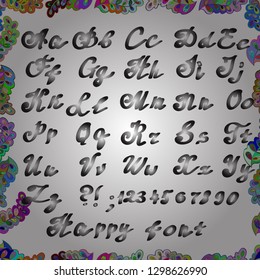 Aa Bb Cc Dd Ee
Ff Gg Hh Ii Jj
Kk Ll Mm Nn Oo
Pp Qq Rr Ss Tt
Uu Vv Ww Xx Yy
Zz ?! ;1234567890
Happy font
shutterstock.com · 1298626990